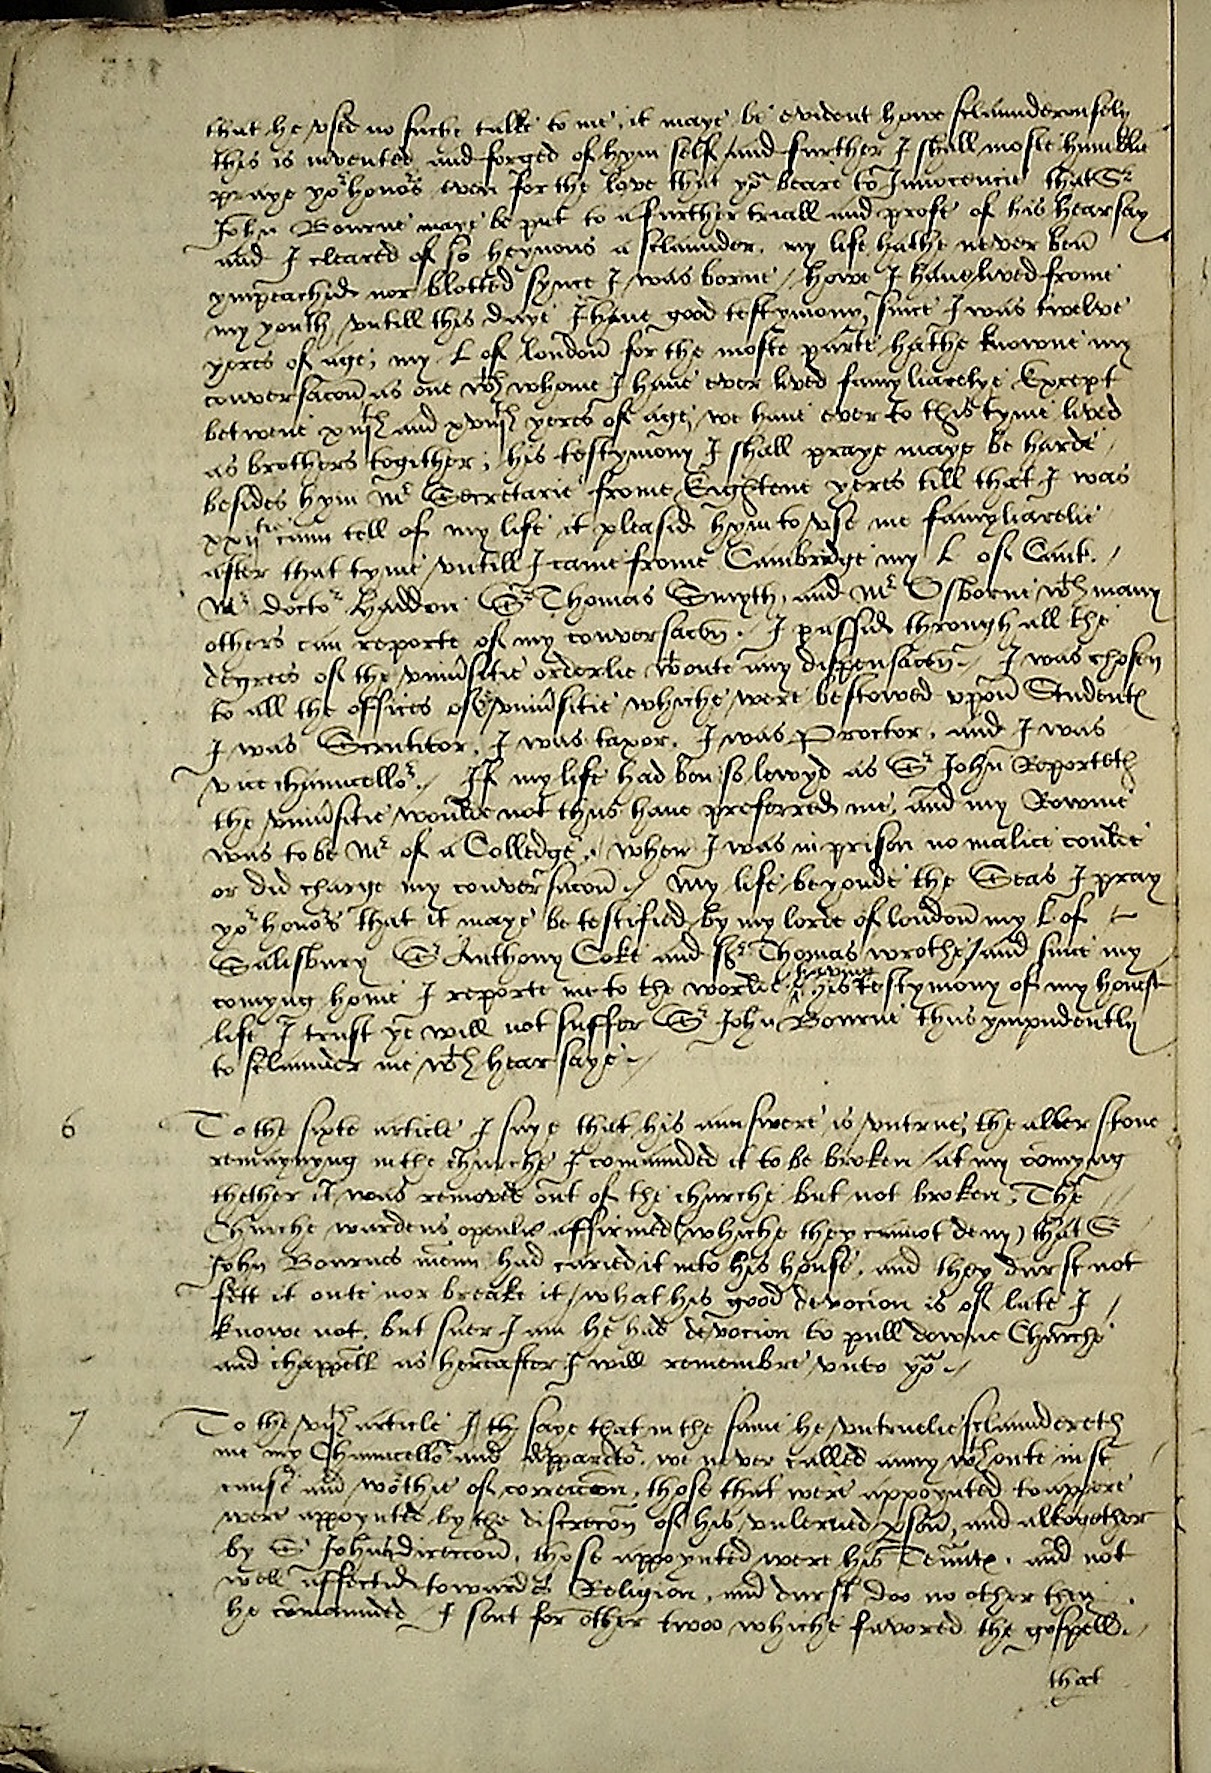 that he vsed no suche talke to me, it maye be evident howe sclaunderouslely
this is invented and forged of hym self / and further I shall moste humblie
praye yor honors even for the love that yo beare to Innocencie that Sr
John Bourne maye be put to a further triall and profe of his hearsay
and I cleared of so heynous a sclaunder. my life hathe never ben
ympeachid nor blotted synce I was borne / howe I haue lived frome
my youth vntill this daye I haue good testymony, since I was twelve
yeres of age; my L of london for the moste parte hathe knowne my
conversacon as one wth whome I haue ever lived famyliarelye Except
betwene xiijth and xviijth yeres of age, we haue ever to this tyme lived
as brothers togither; his testymony I shall praye maye be harde /
besides hym Mr Secretarie frome Eightene yeres till that I was
xxijtie cann tell of my life it pleasid hym to vse me famyliarelie
after that tyme vntill I came frome Cambridge my L of Cant. /
Mr doctor Haddon Sr Thomas Smyth, and Mr Osborne wth many
others can reporte of my conversacon. I passid through all the
degrees of the vniuersitie orderlie wtoute any dispensacon. / I was chosen
to all the offices of ye vniuersitie whiche were bestowed vpon Students
I was Scrutitor, I was taxor. I was Proctor, and I was
vicechauncellor. / If my life had ben so lewyd as Sr John Reporteth
the vniuersitie woulde not thus haue preferred me, and my Rowme
was to be Mr of a Colledge, when I was in prison no malice coulde
or did charge my conversacon. / My life beyonde the Seas I pray
yor honors that it maye be testified by my lorde of london my L of
Salisbury Sr Anthony Coke and Sr Thomas wrothe / and since my
comyng home I reporte me to the worlde having this testymony of my honest
life I trust ye will not suffer Sr John Bourne thus ympudently
to sclaunder me wth hear saye. /
6 To the sixte article I saye that his aunswere is vntrue, the alter stone
remaynyng in the churche I comaunded it to be broken / at my comyng
thether it was removed out of the churche but not broken. The
Churche wardens openlie affirmed (whiche they cannot deny) that S
John Bournes menn had caried it into his house, and they durst not
fett it oute nor breake it / what his good devocion is of late I /
knowe not, but suer I am he had devocion to pull downe Churche
and chappell as hereafter I will remembre vnto yo. /
7 To the vijth article I saye that in the same he vntruelie sclaundereth
me my Chauncellor and Apparitor. we never called anny wthoute iust
cause and worthie of correccon, those that were appoynted to appere
were appoynted by the discrecon of his vnlerned pson, and altogether
by S John direccon, those appoynted were his Tenntes. and not
well affectid towardes Religion, and durst doo no other then
he comaunded / I sent for other twoo whiche favored the gospell. /
that